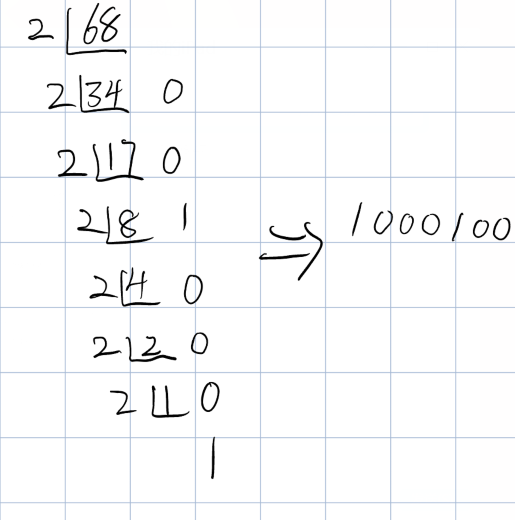 2 68
2 34 0
2 17 0
2 8 1
⇒ 1000100
2 4 0
2 2 0
2 1 0
1